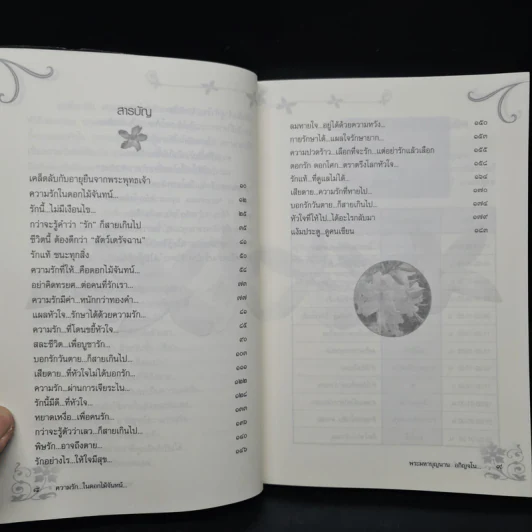 สารบัญ
เคล็ดลับกับอายุยืนจากพระพุทธเจ้า ๑๐
ความรักในดอกไม้จันทน์... ๑๒
รักนี้...ไม่มีเงื่อนไข... ๒๕
กว่าจะรู้คำว่า "รัก" ก็สายเกินไป ๓๕
ชีวิตนี้ ต้องดีกว่า "สัตว์เดรัจฉาน"
รักแท้ ชนะทุกสิ่ง
ความรักที่ให้...คือดอกไม้จันทน์...
อย่าคิดทรยศ...ต่อคนที่รักเรา... ๗๓
ความรักมีค่า...หนักกว่าทองคำ...
แผลหัวใจ...รักษาได้ด้วยความรัก...
ความรัก...ที่โดนขยี้หัวใจ...
สละชีวิต...เพื่อบูชารัก... ๙๐
บอกรักวันตาย...ก็สายเกินไป...
เสียดาย...ที่หัวใจไม่ได้บอกรัก...
ความรัก...ผ่านการเจียระไน... ๑๒๒
รักนี้มีดี...ที่หัวใจ...
หยาดเหงื่อ...เพื่อคนรัก...
กว่าจะรู้ตัวว่าเลว...ก็สายเกินไป...
พิษรัก...อาจถึงตาย...
รักอย่างไร...ให้ใจมีสุข... ๑๔๖
๘ ความรัก...ในดอกไม้จันทน์...
ลมหายใจ...อยู่ได้ด้วยความหวัง... ๑๕๐
กายรักษาได้...แผลใจรักษายาก... ๑๕๓
ความปวดร้าว...เลือกที่จะรัก...แต่อย่ารักแล้วเลือก ๑๕๕
ดอกรัก ดอกโศก...ตราตรึงโลกหัวใจ... ๑๕๘
รักแท้...ที่ดูแลไม่ได้... ๑๖๔
เสียดาย...ความรักที่หายไป... ๑๗๐
บอกรักวันตาย...ก็สายเกินไป... ๑๗๔
หัวใจที่ให้ไป...ได้อะไรกลับมา ๑๗๙
แง้มประตู...ดูคนเขียน ๑๘๓
๙